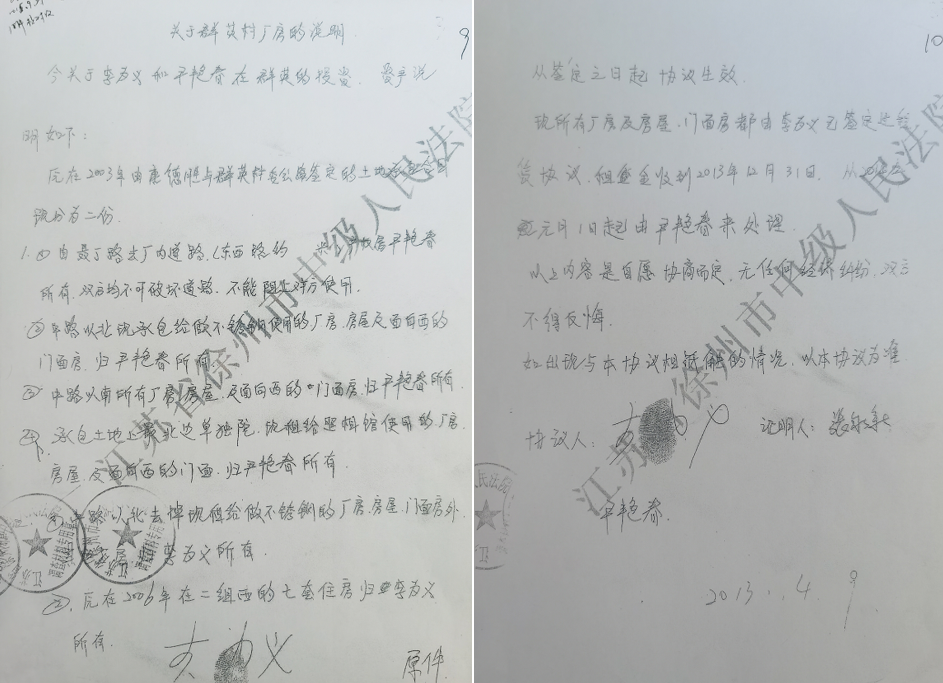 9
关于群英村厂房的说明
今关于李为义和尹艳春在群英的投资 财产说
明如下：
原在2003年由 与群英村委会签定的土地承包合同
现分为二份.
1.① 自 路至厂内道路、(东西路的 尹艳春
所有.双方均不可破坏道路.不能阻止对方使用.
② 中路以北现承包给做不锈钢使用的厂房.房屋及面向西的
门面房.归尹艳春所有.
③ 中路以南所有厂房.房屋.及面向西的 门面房.归尹艳春所有.
④ 承包土地上最北边单独院.现租给照相馆使用的厂房.
房屋.及面向西的门面.归尹艳春所有.
中路以北去掉现租给做不锈钢的厂房.房屋.门面房外.
李为义所有.
②.原在2006年在二组西的七套住房归 李为义
所有.
李为义
原件
江苏省徐州市中级人民法院
10
从签定之日起协议生效.
现所有厂房及房屋.门面房都由李为义已签定
协议.租金 收到2013年12月31日. 从
元月1日起由尹艳春来处理.
以上内容是自愿协商而定.无任何经济纠纷.双方
不得反悔.
如出现与本协议相抵触的情况.以本协议为准
协议人： 李为义 证明人：
尹艳春.
2013..4.9.
江苏省徐州市中级人民法院